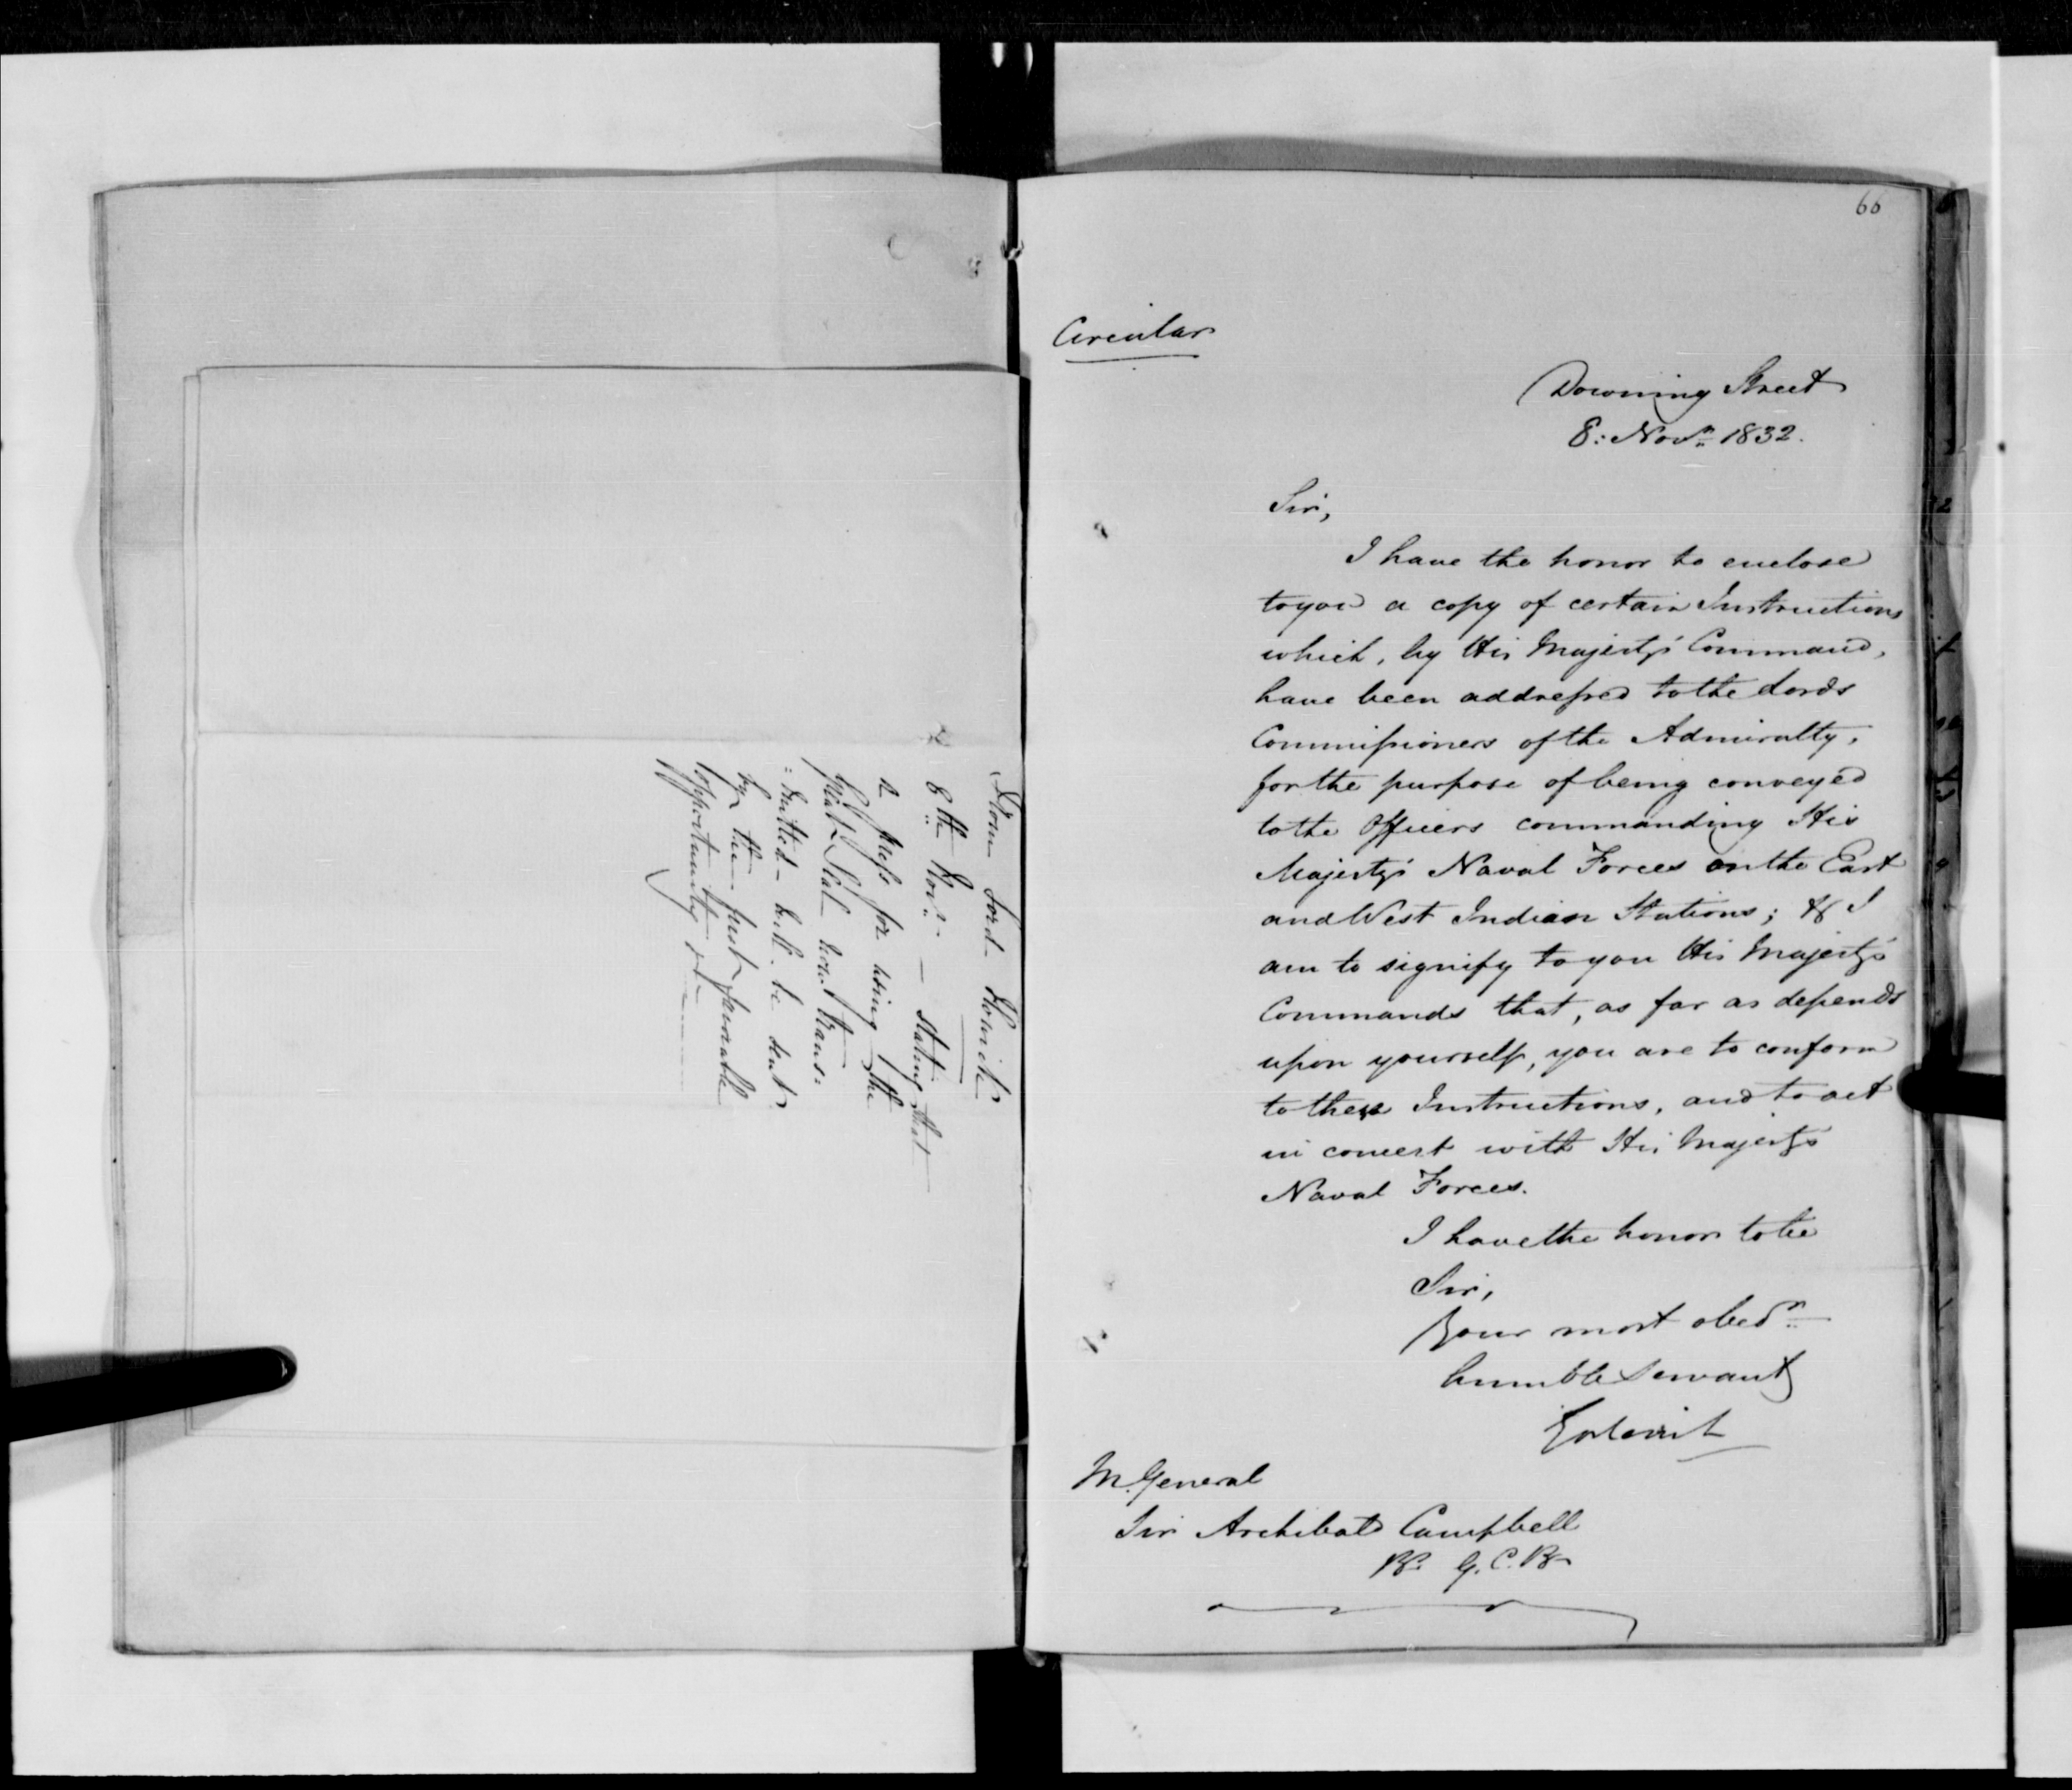 From Lord Howick
8th Novr. — stating that
a press for using the
Great Seal now trans:
:mitted - will be sent
by the first favorable
opportunity &c
66
Circular
Downing Street
8: Novr. 1832.
Sir,
I have the honor to enclose
to you a copy of certain Instructions
which, by His Majesty's Command,
have been addressed to the Lords
Commissioners of the Admiralty,
for the purpose of being conveyed
to the Officers commanding His
Majesty's Naval Forces on the East
and West Indian Stations; & I
am to signify to you His Majesty's
Commands that, as far as depends
upon yourself, you are to conform
to these Instructions, and to act
in concert with His Majesty's
Naval Forces.
I have the honor to be
Sir,
Your most obedt.
humble Servant
Goderich
M. General
Sir Archibald Campbell
Bt. G.C.B.